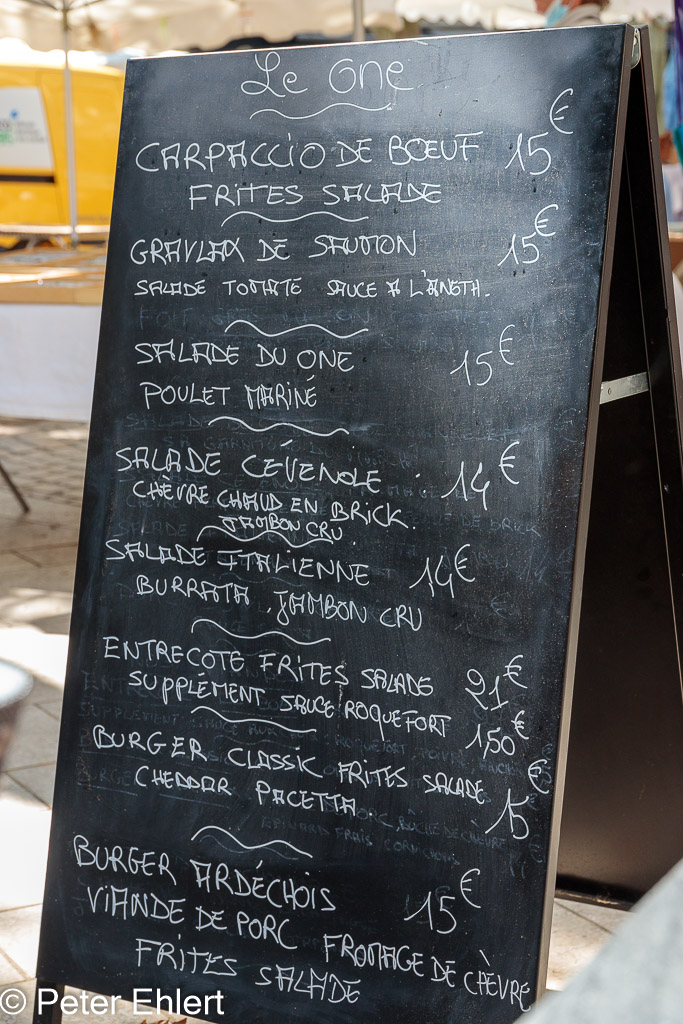 Le One
CARPACCIO DE BŒUF 15€
FRITES SALADE
GRAVLAX DE SAUMON 15€
SALADE TOMATE SAUCE A L'ANETH.
SALADE DU ONE 15€
POULET MARINÉ
SALADE CÉVENOLE 14€
CHÈVRE CHAUD EN BRICK.
JAMBON CRU.
SALADE ITALIENNE 14€
BURRATA, JAMBON CRU
ENTRECOTE FRITES SALADE 21€
SUPPLÉMENT SAUCE ROQUEFORT 1,50€
BURGER CLASSIC FRITES SALADE 15€
CHEDDAR PACETTA
BURGER ARDÉCHOIS 15€
VIANDE DE PORC FROMAGE DE CHÈVRE
FRITES SALADE
© Peter Ehlert